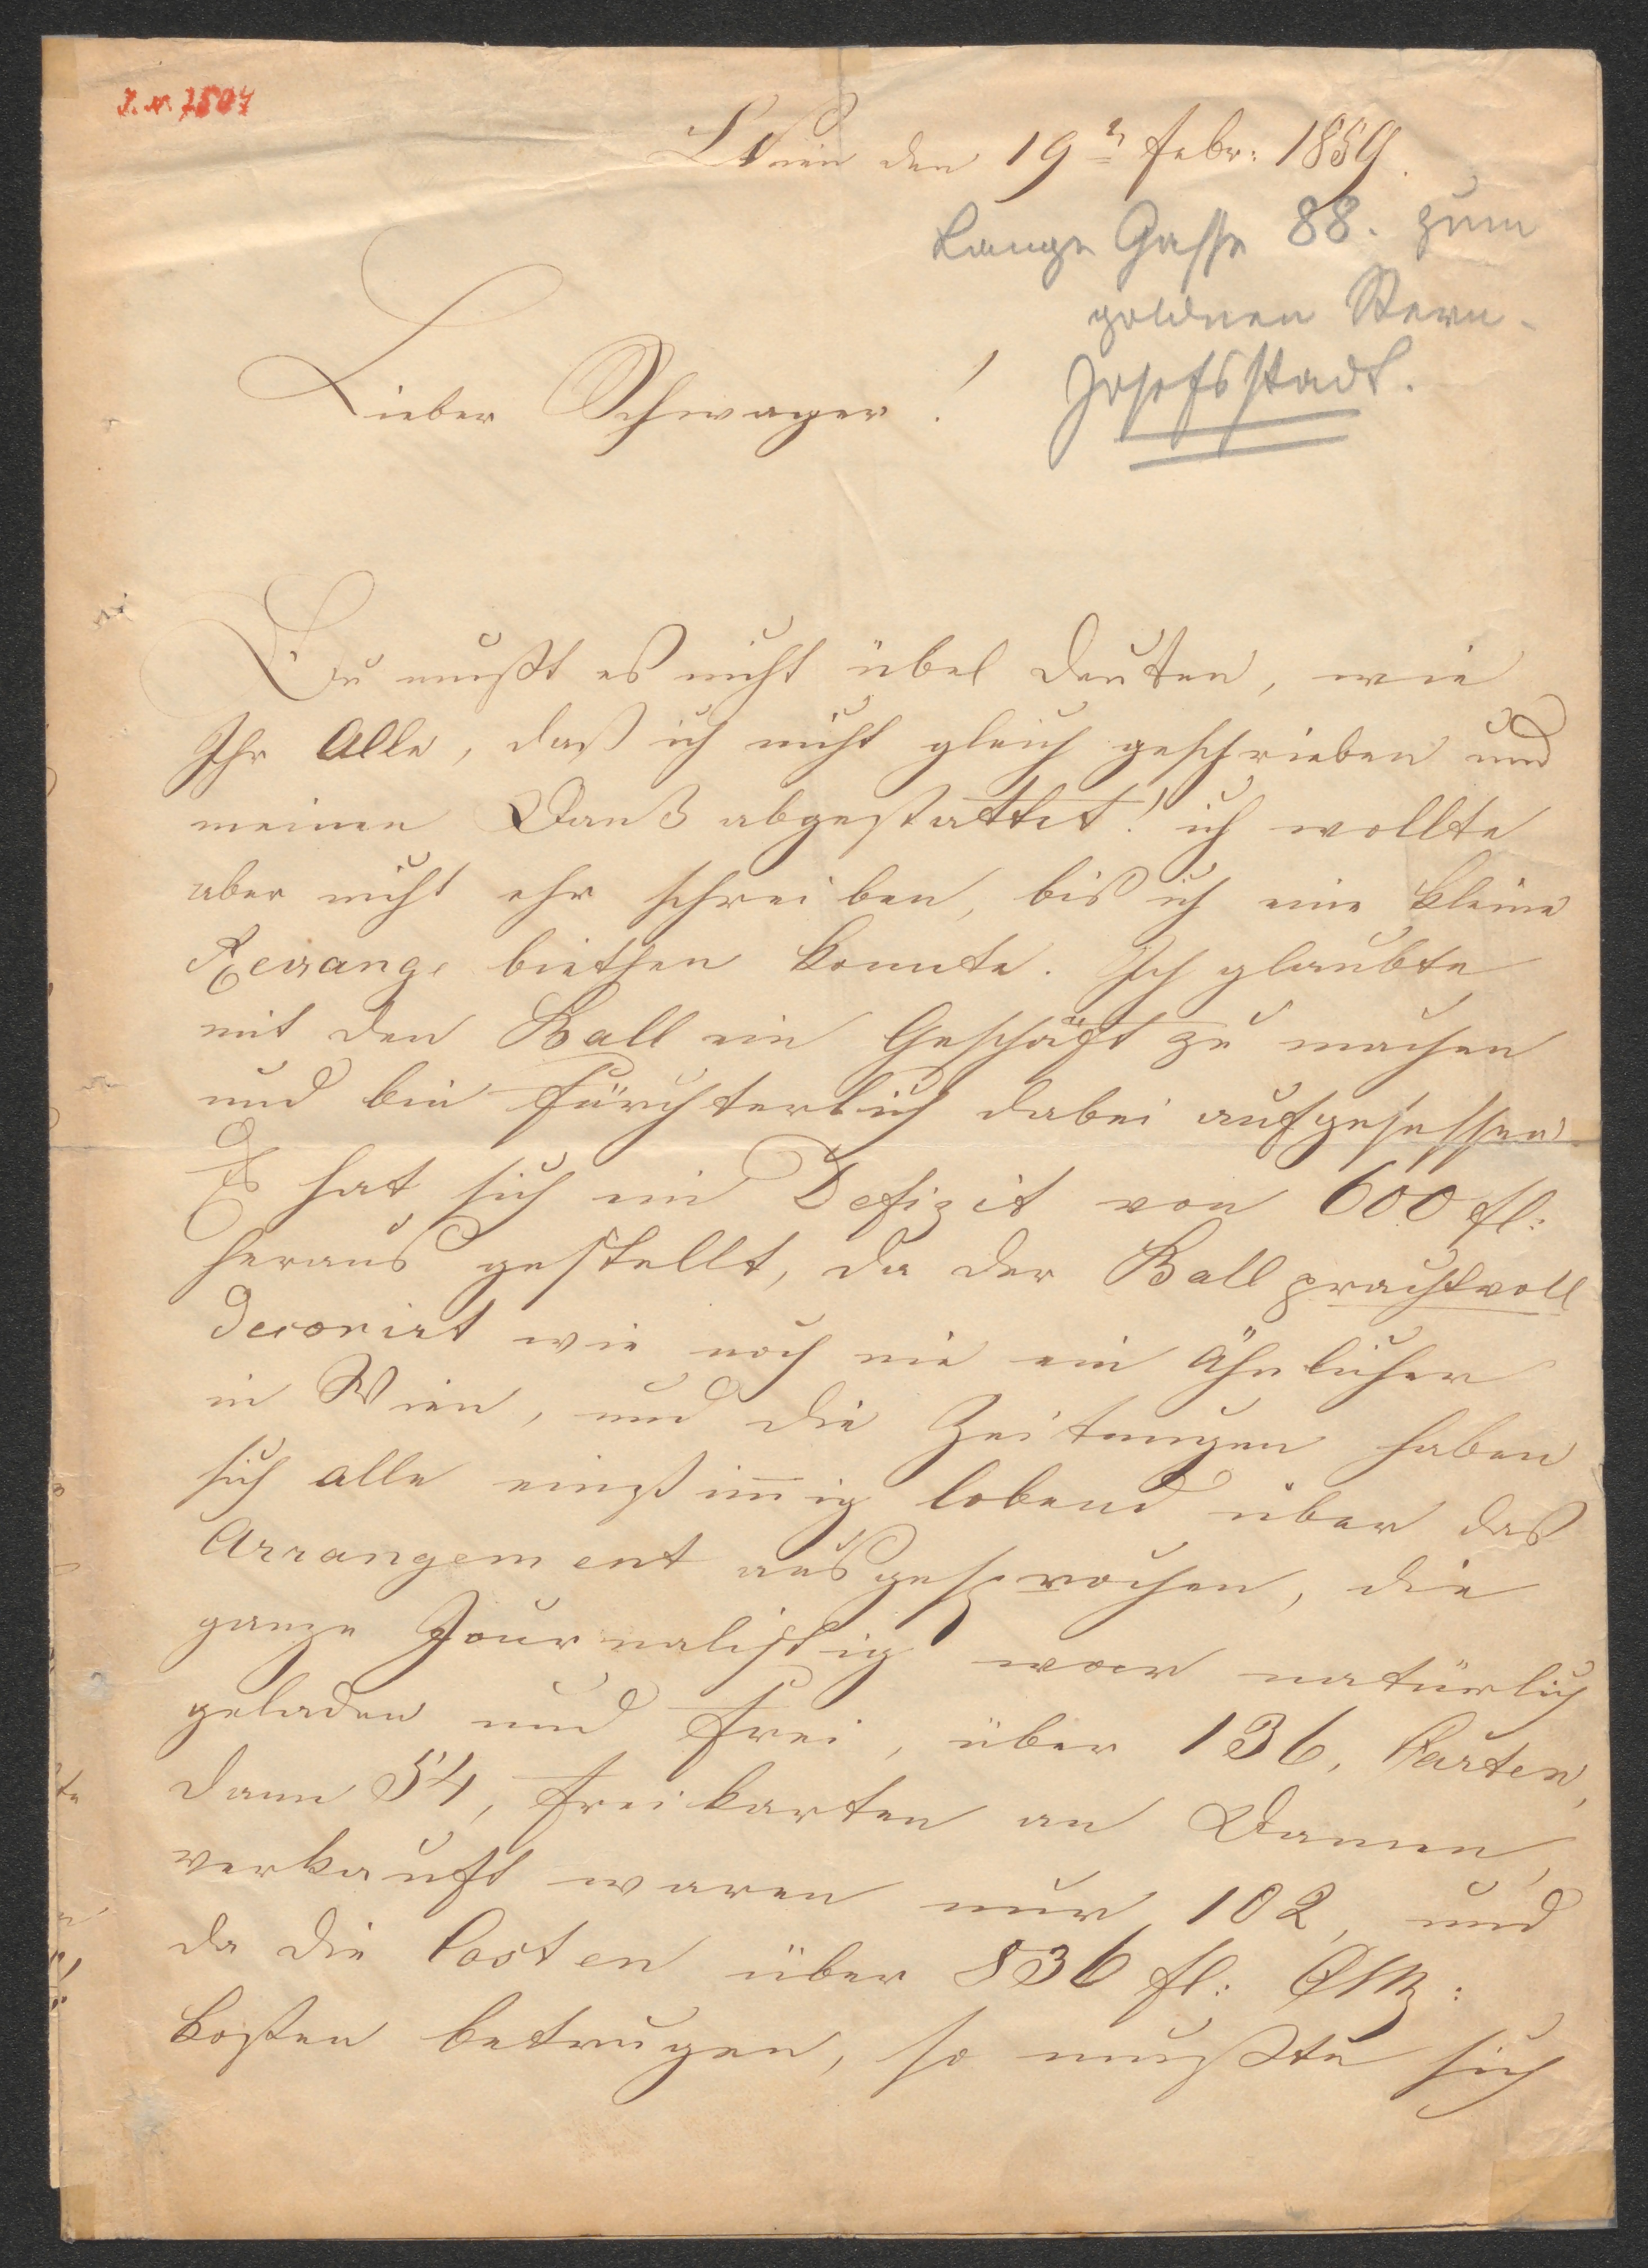 J. N. 7504
Wien den 19n Febr: 1859.
Lange Gasse 88. zum
goldnen Stern -
Josefsstadt.
Lieber Schwager!
Du mußt es nicht übel deuten, wie
Ihr Alle, daß ich nicht gleich geschrieben und
meinen Dank abgestattet! ich wollte
aber nicht ehr schreiben, bis ich eine kleine
Revange biethen konnte. Ich glaubte
mit den Ball ein Geschäft zu machen
und bin fürchterlich dabei aufgesessen
Es hat sich ein Defizit von 600 fl:
heraus gestellt, da der Ball prachtvoll
decorirt wie noch nie ein Ähnlicher
in Wien, und die Zeitungen haben
sich alle einstim̅ig lobend über das
Arrangement ausgesprochen, die
ganze Journalistig war natürlich
geladen und frei, über 136, Karten,
dann 54, Freikarten an Damen,
verkauft waren nur 102, und
da die Costen über 836 fl:
kosten betrugen, so mußte sich